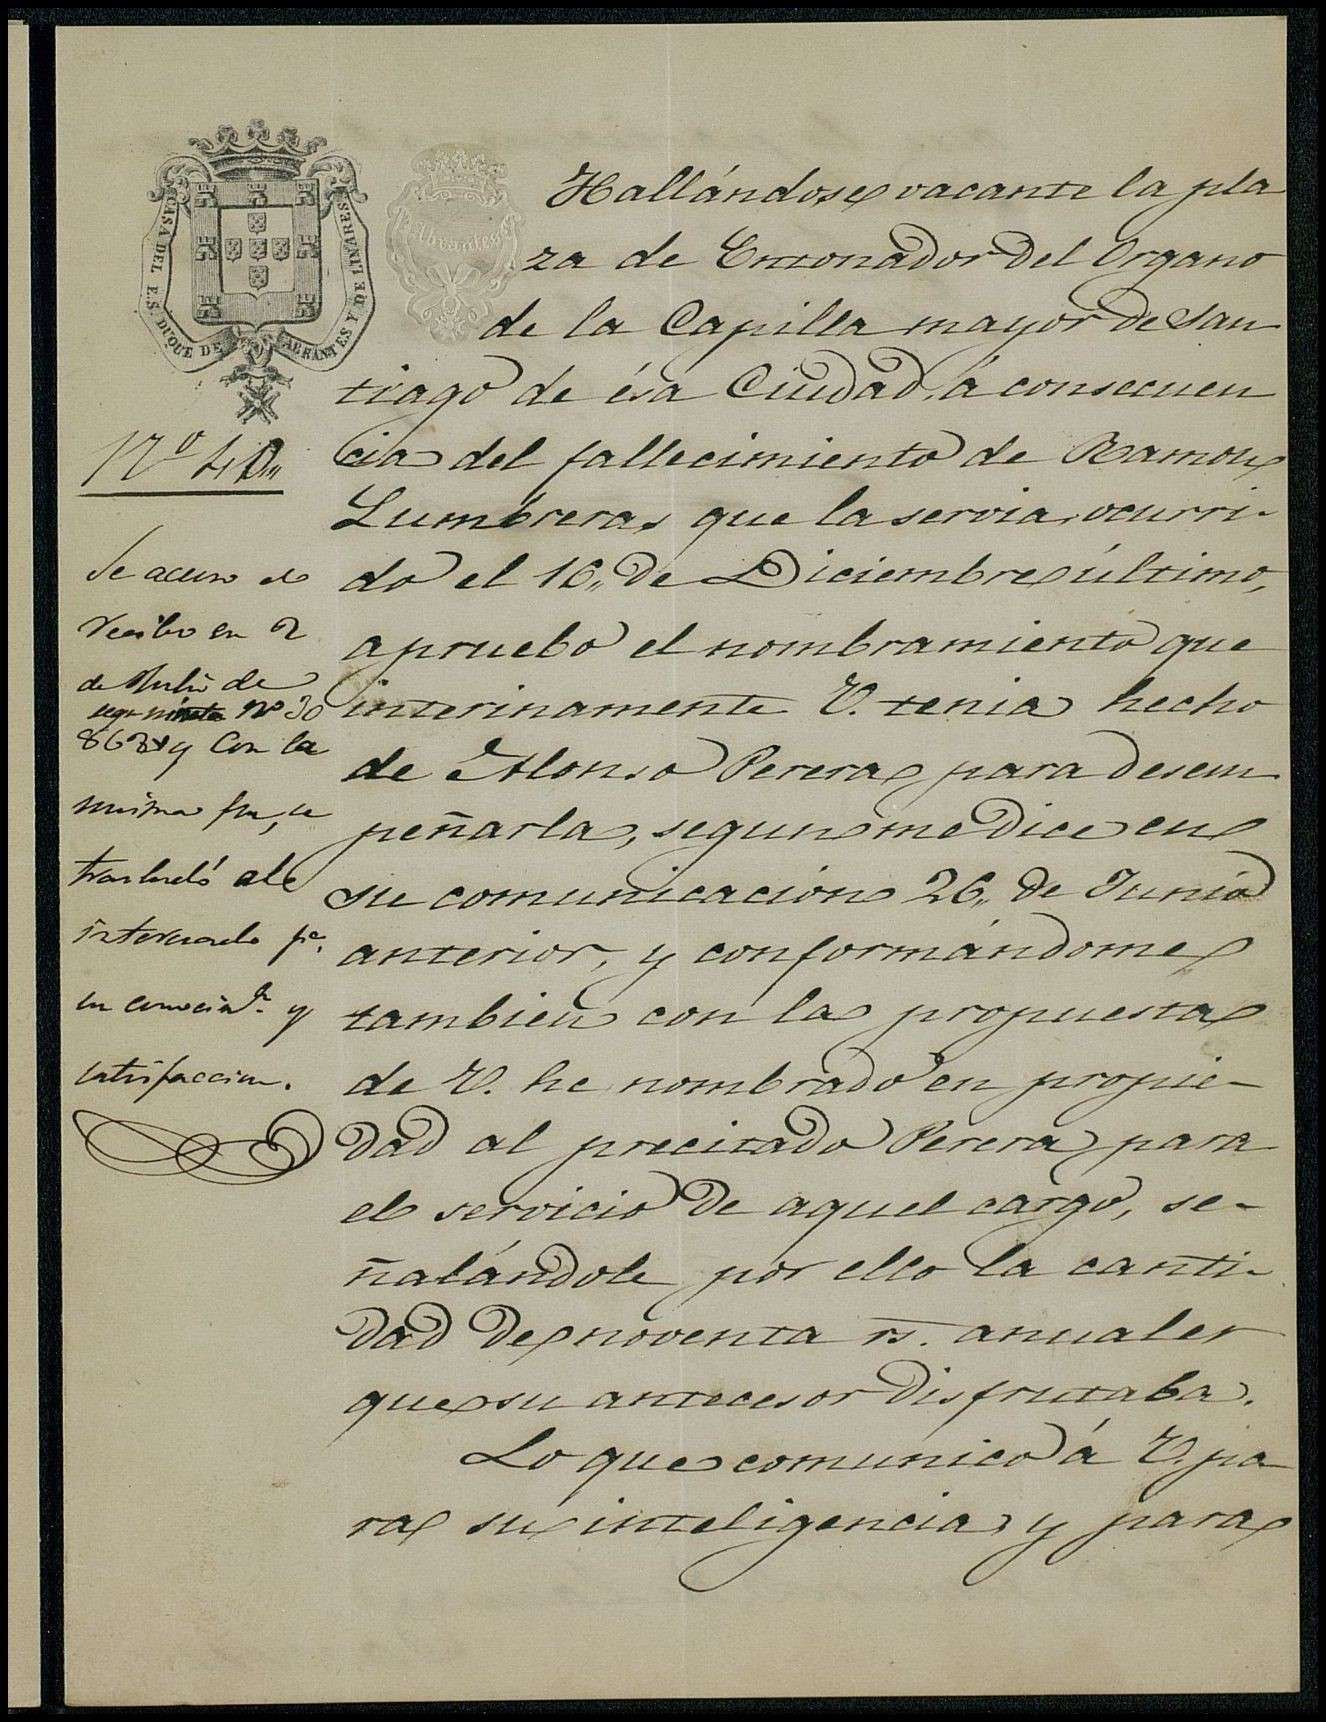 CASA DEL E.S. DUQUE DE ABRANTES Y DE LINARES
Abrantes
Hallándose vacante la pla
za de Entonador del Organo
de la Capilla mayor de San
tiago de ésa Ciudad, á consecuen
cia del fallecimiento de Ramon
Lumbreras que la servia, ocurri-
do el 16,, de Diciembre último,
apruebo el nombramiento que
interinamente V. tenia hecho
de Alonso Perera para desem
peñarla, segun me dice en
su comunicacion 26,, de Junio
anterior, y conformándome
tambien con la propuesta
de V. he nombrado en propie-
dad al precitado Perera para
el servicio de aquel cargo, se-
ñalándole por ello la canti-
dad de noventa rs. anuales
que su antecesor disfrutaba.
Lo que comunico á V. pa
ra su inteligencia y para
Nº
Se acuso el
recibo en 2
de Julio de
segun minuta Nº 30
y con la
misma fha, se
trasladó al
interesado pª.
su conocimtº. y
satisfaccion.